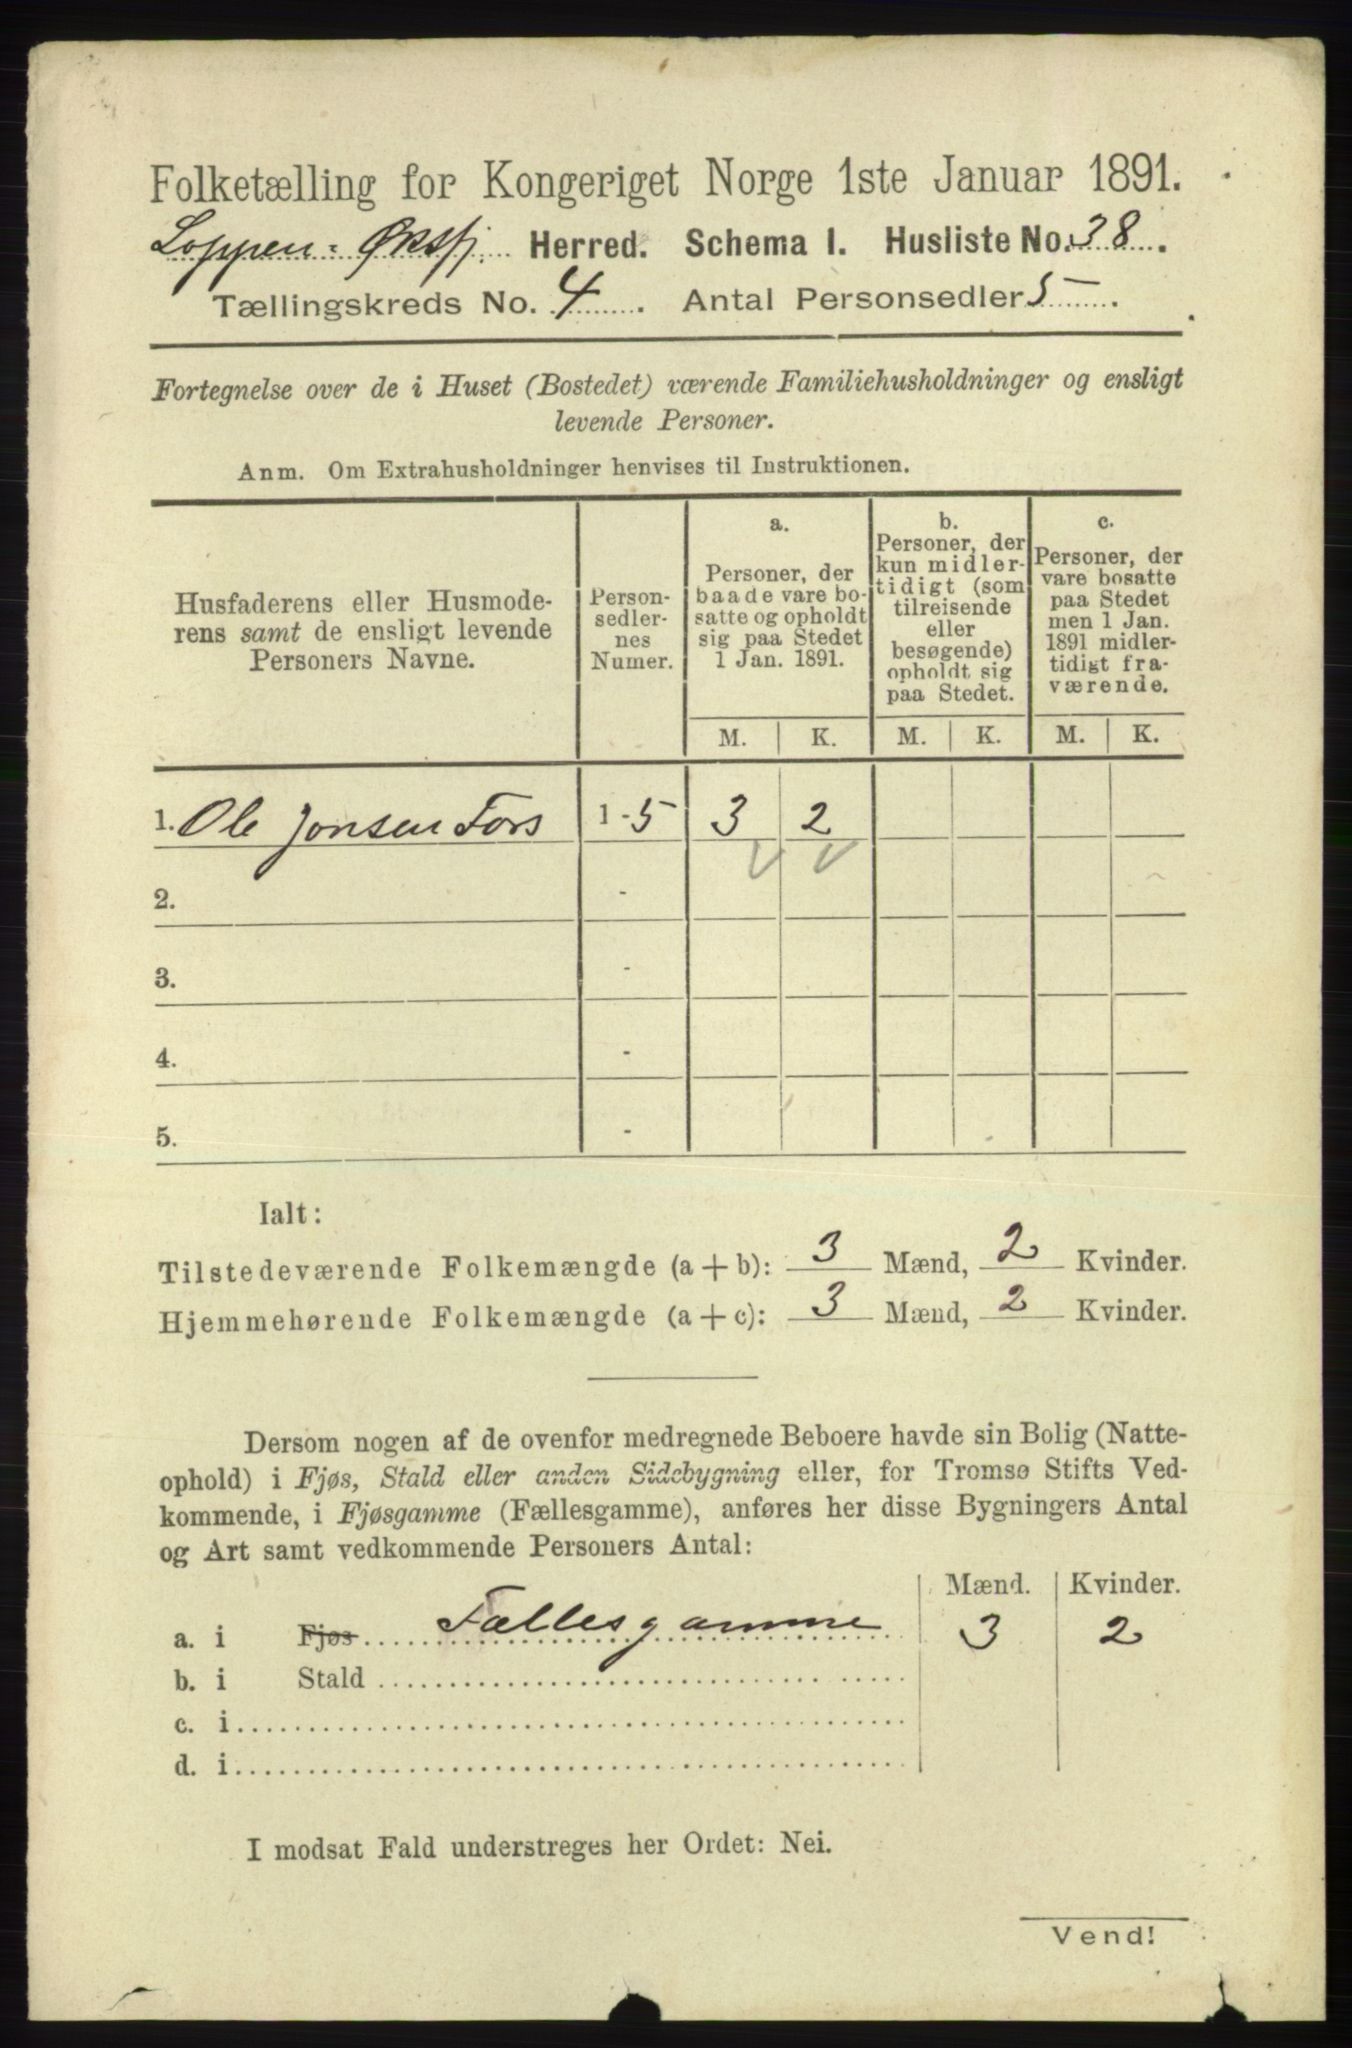 Folketælling for Kongeriget Norge 1ste Januar 1891.
Loppen - Øksfj. Herred. Schema I. Husliste No. 38.
Tællingskreds No. 4. Antal Personsedler 5.
Fortegnelse over de i Huset (Bostedet) værende Familiehusholdninger og ensligt
levende Personer.
Anm. Om Extrahusholdninger henvises til Instruktionen.
Husfaderens eller Husmode-
rens samt de ensligt levende
Personers Navne.
Person-
sedler-
nes
Numer.
a.
Personer, der
baade vare bo-
satte og opholdt
sig paa Stedet
1 Jan. 1891.
b.
Personer, der
kun midler-
tidigt (som
tilreisende
eller
besøgende)
opholdt sig
paa Stedet.
c.
Personer, der
vare bosatte
paa Stedet
men 1 Jan.
1891 midler-
tidigt fra-
værende.
M. K. M. K. M. K.
1. Ole Jonsen Fors 1 - 5 3 2
2. -
3. -
4. -
5. -
Ialt:
Tilstedeværende Folkemængde (a + b): 3 Mænd, 2 Kvinder.
Hjemmehørende Folkemængde (a + c): 3 Mænd, 2 Kvinder.
Dersom nogen af de ovenfor medregnede Beboere havde sin Bolig (Natte-
ophold) i Fjøs, Stald eller anden Sidebygning eller, for Tromsø Stifts Ved-
kommende, i Fjøsgamme (Fællesgamme), anføres her disse Bygningers Antal
og Art samt vedkommende Personers Antal:
Mænd. Kvinder.
a. i Fjøs Fællesgamme 3 2
b. i Stald
c. i
d. i
I modsat Fald understreges her Ordet: Nei.
Vend!